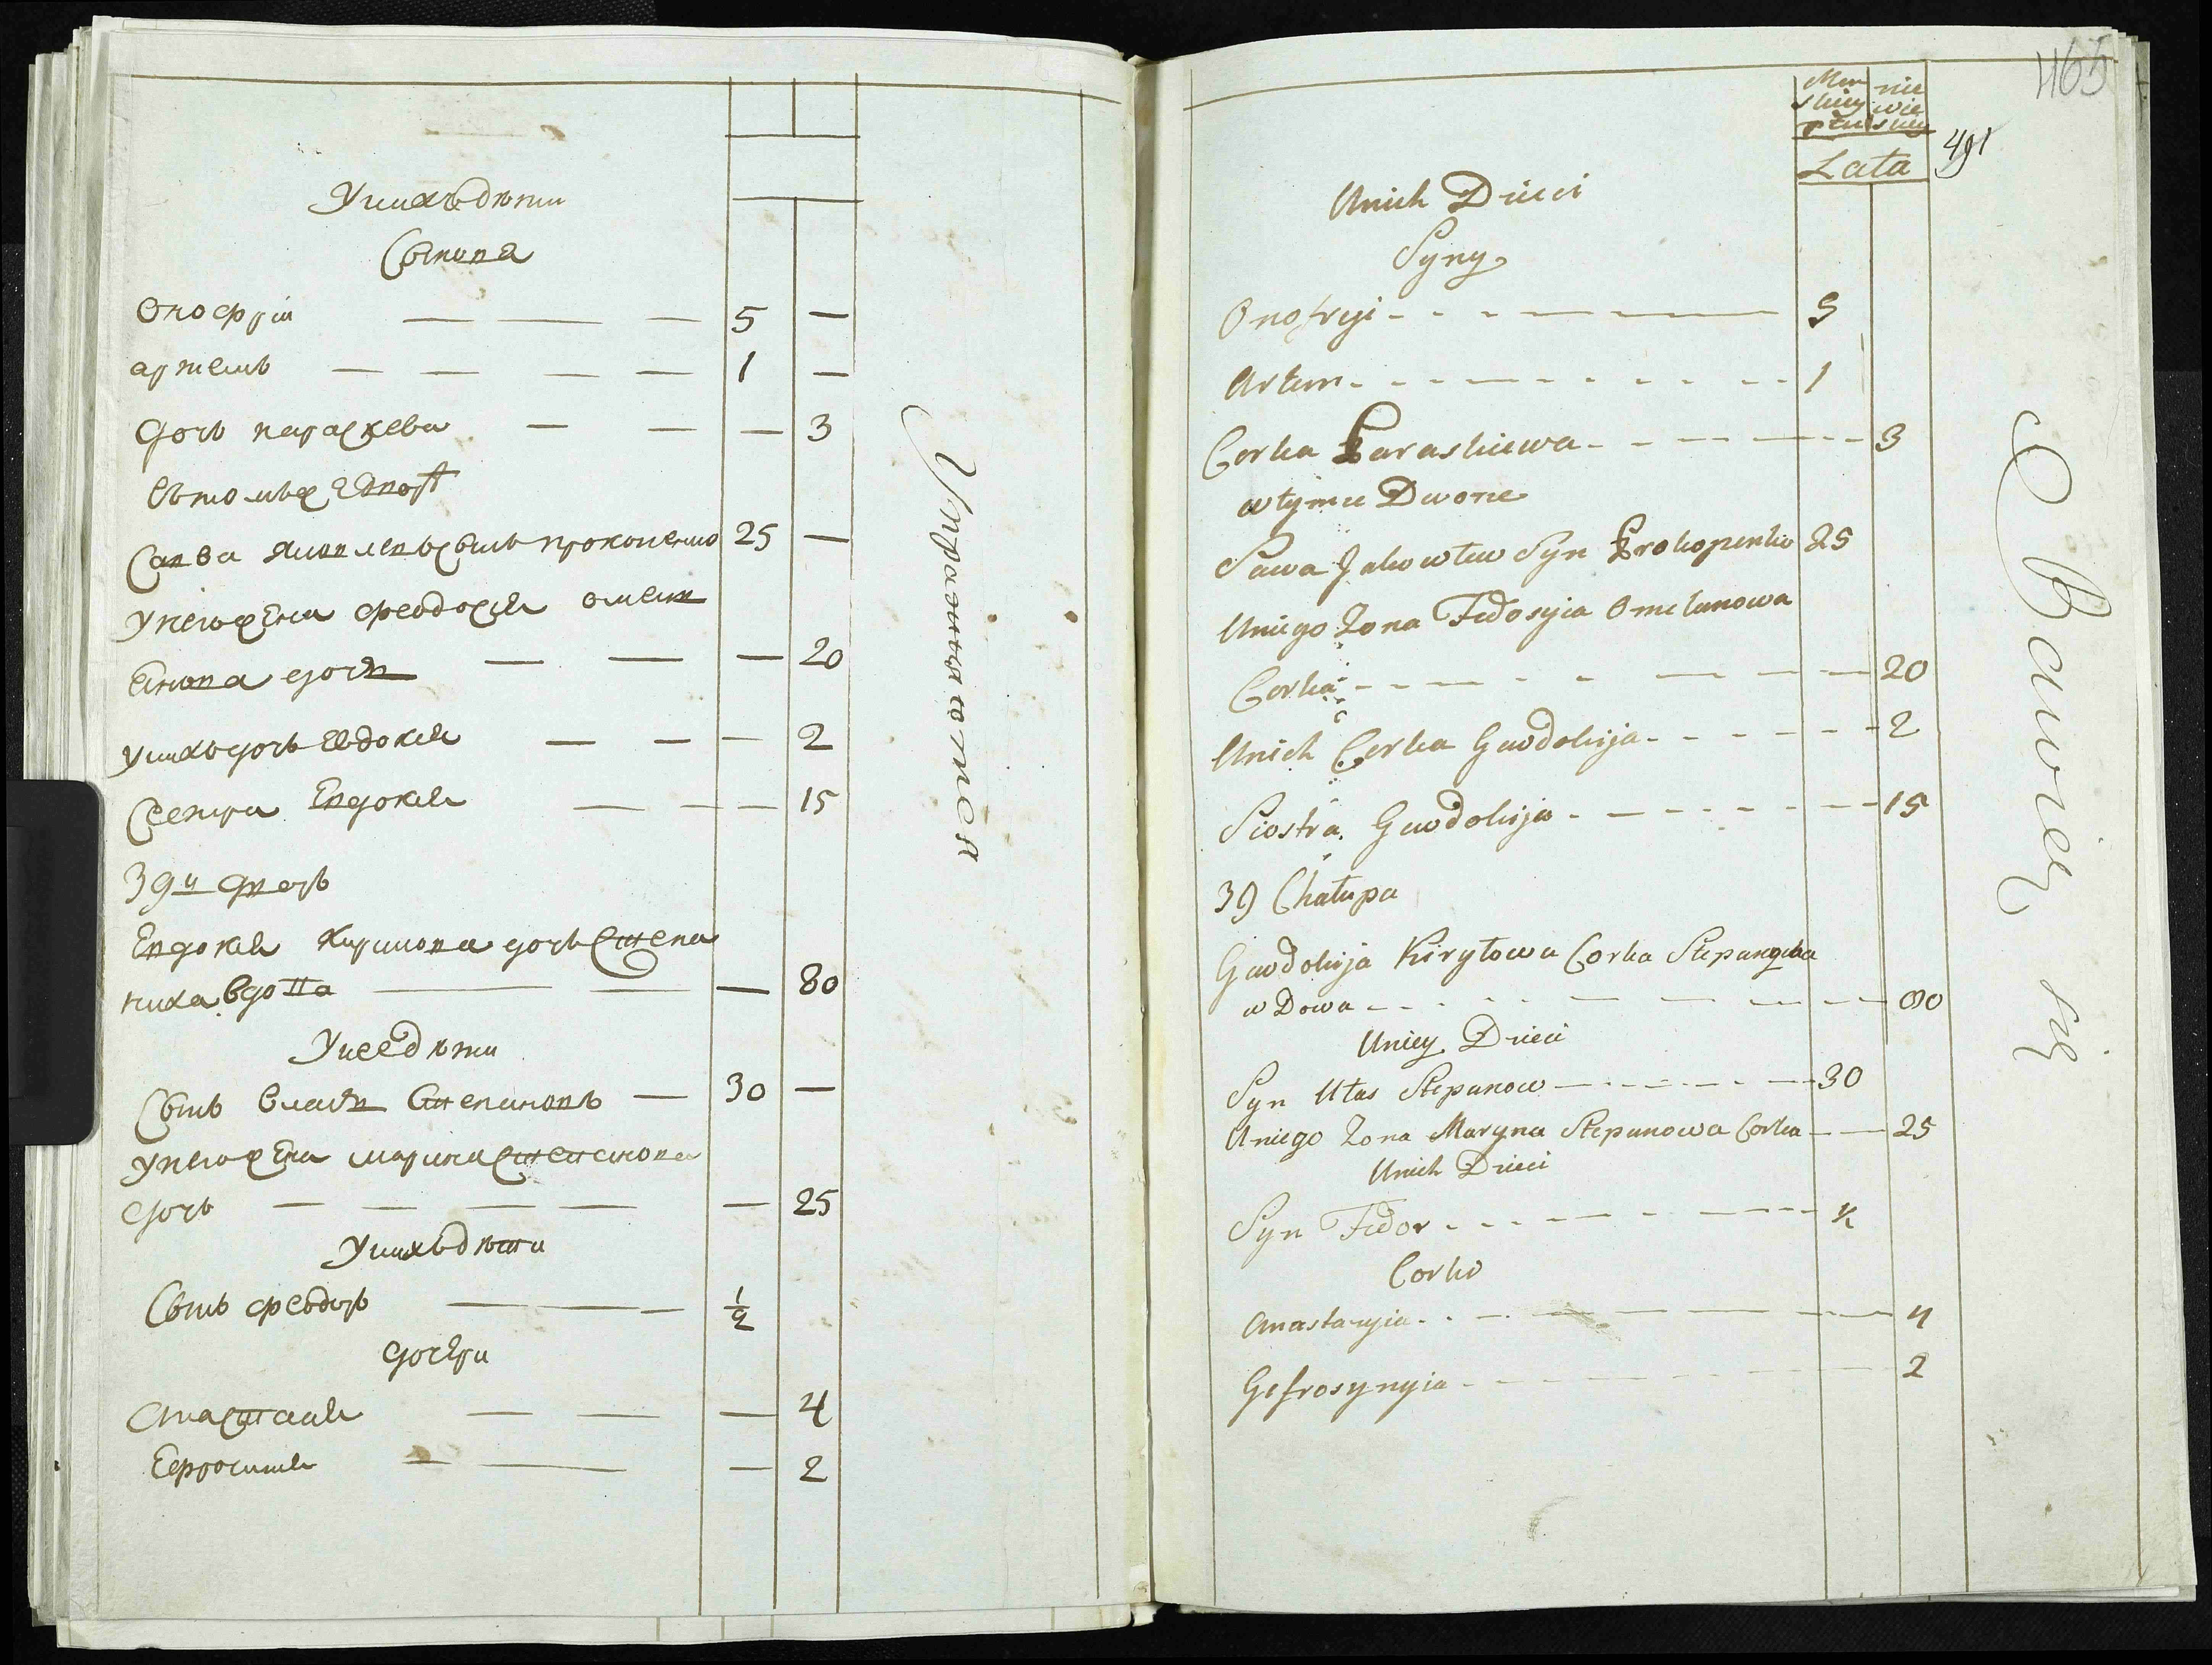 У нихъ дѣти
Сынова
Онофрiи 5 —
артемъ 1 —
дочь параскева — 3
въ томъже двоѣ
Савва яковлевъ сынъ прокопенко 25 —
У него жена феодосия омеля
нова дочь — 20
у нихъ дочь Евдокия — 2
Сестра Евдокия — 15
39й дворъ
Евдокия Кирилова дочь Степа
ниха вдова — 80
У нее дѣти
Сынъ власъ Степановъ — 30 —
У него жена марина Степанова
дочь — 25
У нихъ дѣти
Сынъ феодоръ 1/2
дочери
Анастасия — 4
Ефросиния — 2
Упражняются
465
491
Męz nie
skiey wie
płu skiey
Lata
Unich Dzieci
Syny
Onofryi 5
Artem 1
Corka Paraskiewa 3
w tymże Dworze
Sawa Jakowlew Syn Prokopenko 25
Uniego Zona Fedosyia Omelanowa
Corka 20
Unich Corka Gewdokija 2
Siostra Gewdokija 15
39 Chałupa
Gewdokija Kiryłowa Corka Stepanycha
w Dowa 80
Uniey Dzieci
Syn Ułas Stepanow 30
Uniego Zona Maryna Stepanowa Corka 25
Unich Dzieci
Syn Fedor ½
Corki
Anastazyia 4
Gefrosynyia 2
Bawię się